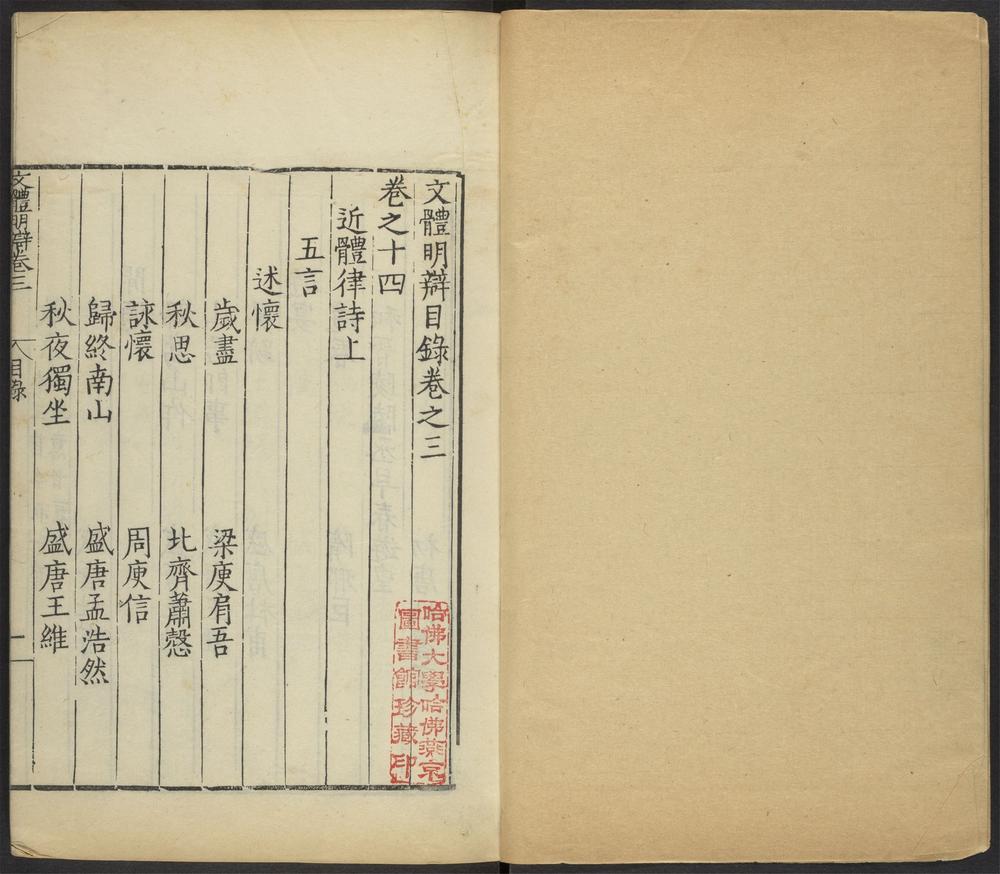 文體明辯目錄卷之三
卷之十四
近體律詩上
五言
述懷
歲盡 梁庾肩吾
秋思 北齊蕭慤
詠懷 周庾信
歸終南山 盛唐孟浩然
秋夜獨坐 盛唐王維
文體明辯卷三 目錄 一
哈佛大學哈佛燕京
圖書館珍藏印